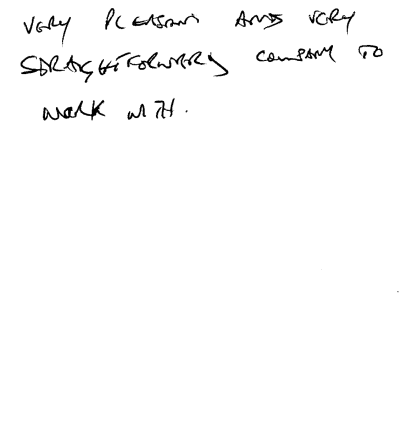 VERY PLEASANT AND VERY
STRAIGHTFORWARD COMPANY TO
WORK WITH.